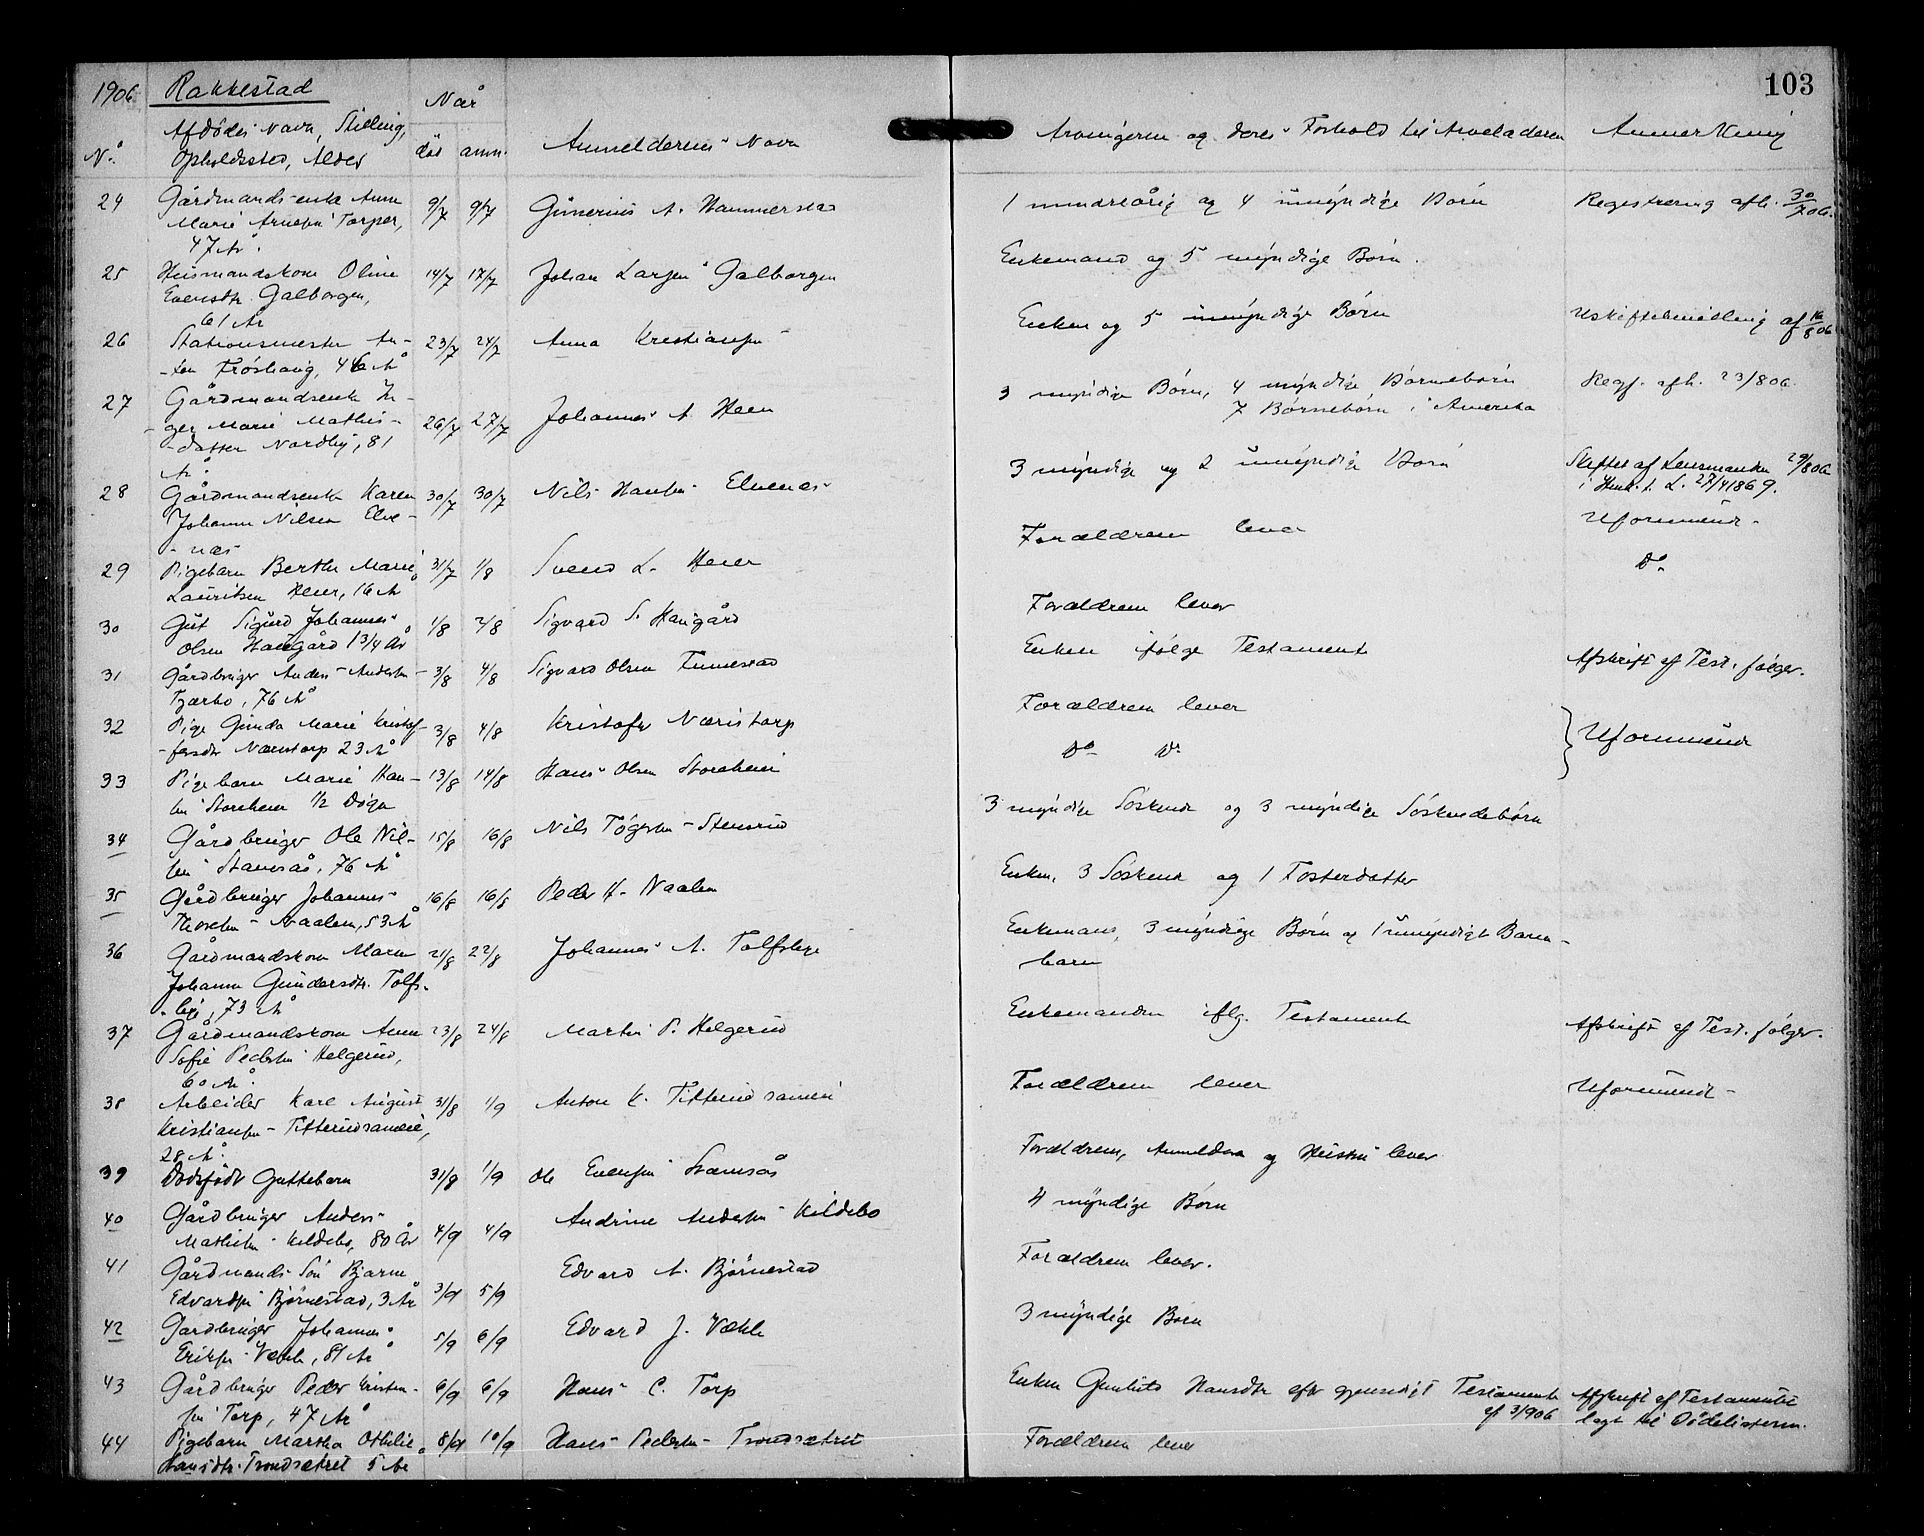 1906 Rakkestad
103
Når
Nº Afdødes Navn, Stilling,
Opholdssted, Alder død anm. Anmelderens Navn Arvingerne og deres Forhold til Arveladeren Anmerkning
24 Gårdmandsenke Anne 9/7 9/7 Gunerius A. Hammerstad 1 mindreårig og 4 umyndige Børn Registrering afh. 30/7 06.
Marie Arnesen Torper,
47 År.
25 Husmandskone Oline 14/7 17/7 Johan Larsen Galborgen Enkemand og 5 myndige Børn.
Evensdtr. Galborgen,
61 År
26 Stationsmester An- 23/7 24/7 Anna Kristiansen Enken og 5 umyndige Børn Uskiftebevilling af 16/8 06
-ton Frøshaug, 46 År
27 Gårdmandsenke In- 26/7 27/7 Johannes A. Heen 3 myndige Børn, 4 myndige Børnebørn Regj. afh. 23/8 06.
-ger Marie Mathis- 7 Børnebørn i Amerika
-datter Nordby, 81
År
28 Gårdmandsenke Karen 30/7 30/7 Nils Hansen Elvenes 3 myndige og 2 umyndige Børn Skiftet af Lensmanden 29/8 06
Johanne Nilsen Elve- i Henh. t. L. 27/4 1869.
-næs
29 Pigebarn Berthe Marie 31/7 1/8 Svend L. Heier Forældrene lever Uformuende
Lauritsen Heier, 16 År
30 Gut Sigurd Johannes 1/8 2/8 Sigvard S. Haugård Forældrene lever Dº
Olsen Haugård 1 3/4 År
31 Gårdbruger Anders Andersen 3/8 4/8 Sigvard Olsen Finnestad Enken ifølge Testamente Afskrift af Test. følger.
Tjærbo, 76 År
32 Pige Gunda Marie Kristof- 3/8 4/8 Kristofer Næristorp Forældrene lever Uformuende
-fersdtr Næristorp 23 År
33 Pigebarn Marie Han- 13/8 14/8 Hans Olsen Storeheier Dº Dº
sen Storeheier 1/2 Døgn
34 Gårdbruger Ole Nil- 15/8 16/8 Nils Tøgersen Stensrud 3 myndige Søskende og 3 myndige Søskendebørn
sen Stamsås, 76 År
35 Gårdbruger Johannes 16/8 16/8 Peder H. Naalen Enken, 3 Søskende og 1 Fosterdatter
Thoresen Naalen, 53 År
36 Gårdmandskone Maren 21/8 22/8 Johannes A. Tolfsbye Enkemand, 3 myndige Børn og 1 umyndigt Barne-
Johanne Gundersdtr. Tolfs- barn
-bye, 73 År
37 Gårdmandskone Anne 23/8 24/8 Martin P. Helgerud Enkemanden iflg. Testamente Afskrift af Test. følger.
Sofie Pedersen Helgerud,
60 År.
38 Arbeider Karl August 31/8 1/9 Anton K. Titterudsameie Forældrene lever Uformuende
Kristiansen Titterudsameie,
28 År.
39 Dødsfødt Guttebarn 31/8 1/9 Ole Evensen Svamsås Forældrene, Anmelderen og Hustru lever
40 Gårdbruger Anders 4/9 4/9 Andrine Andersen Kildebo 4 myndige Børn
Mathisen Kildebo, 80 År
41 Gårdmands Søn Bjarne 3/9 5/9 Edvard A. Bjørnestad Forældrene lever.
Edvardsen Bjørnestad, 3 År
42 Gårdbruger Johannes 5/9 6/9 Edvard J. Vækle 3 myndige Børn
Eriksen Vækle, 81 År
43 Gårdbruger Peder Kristen- 6/9 6/9 Hans C. Torp Enken Gunhild Hansdtr efter gjensidigt Testamente Afskrift af Testamentet
sen Torp, 47 År af 3/9 06 lagt til Dødslisterne.
44 Pigebarn Martha Othilie 8/9 10/9 Hans Pedersen Trondsætret Forældrene lever
Hansdtr. Trondsætret 5 År